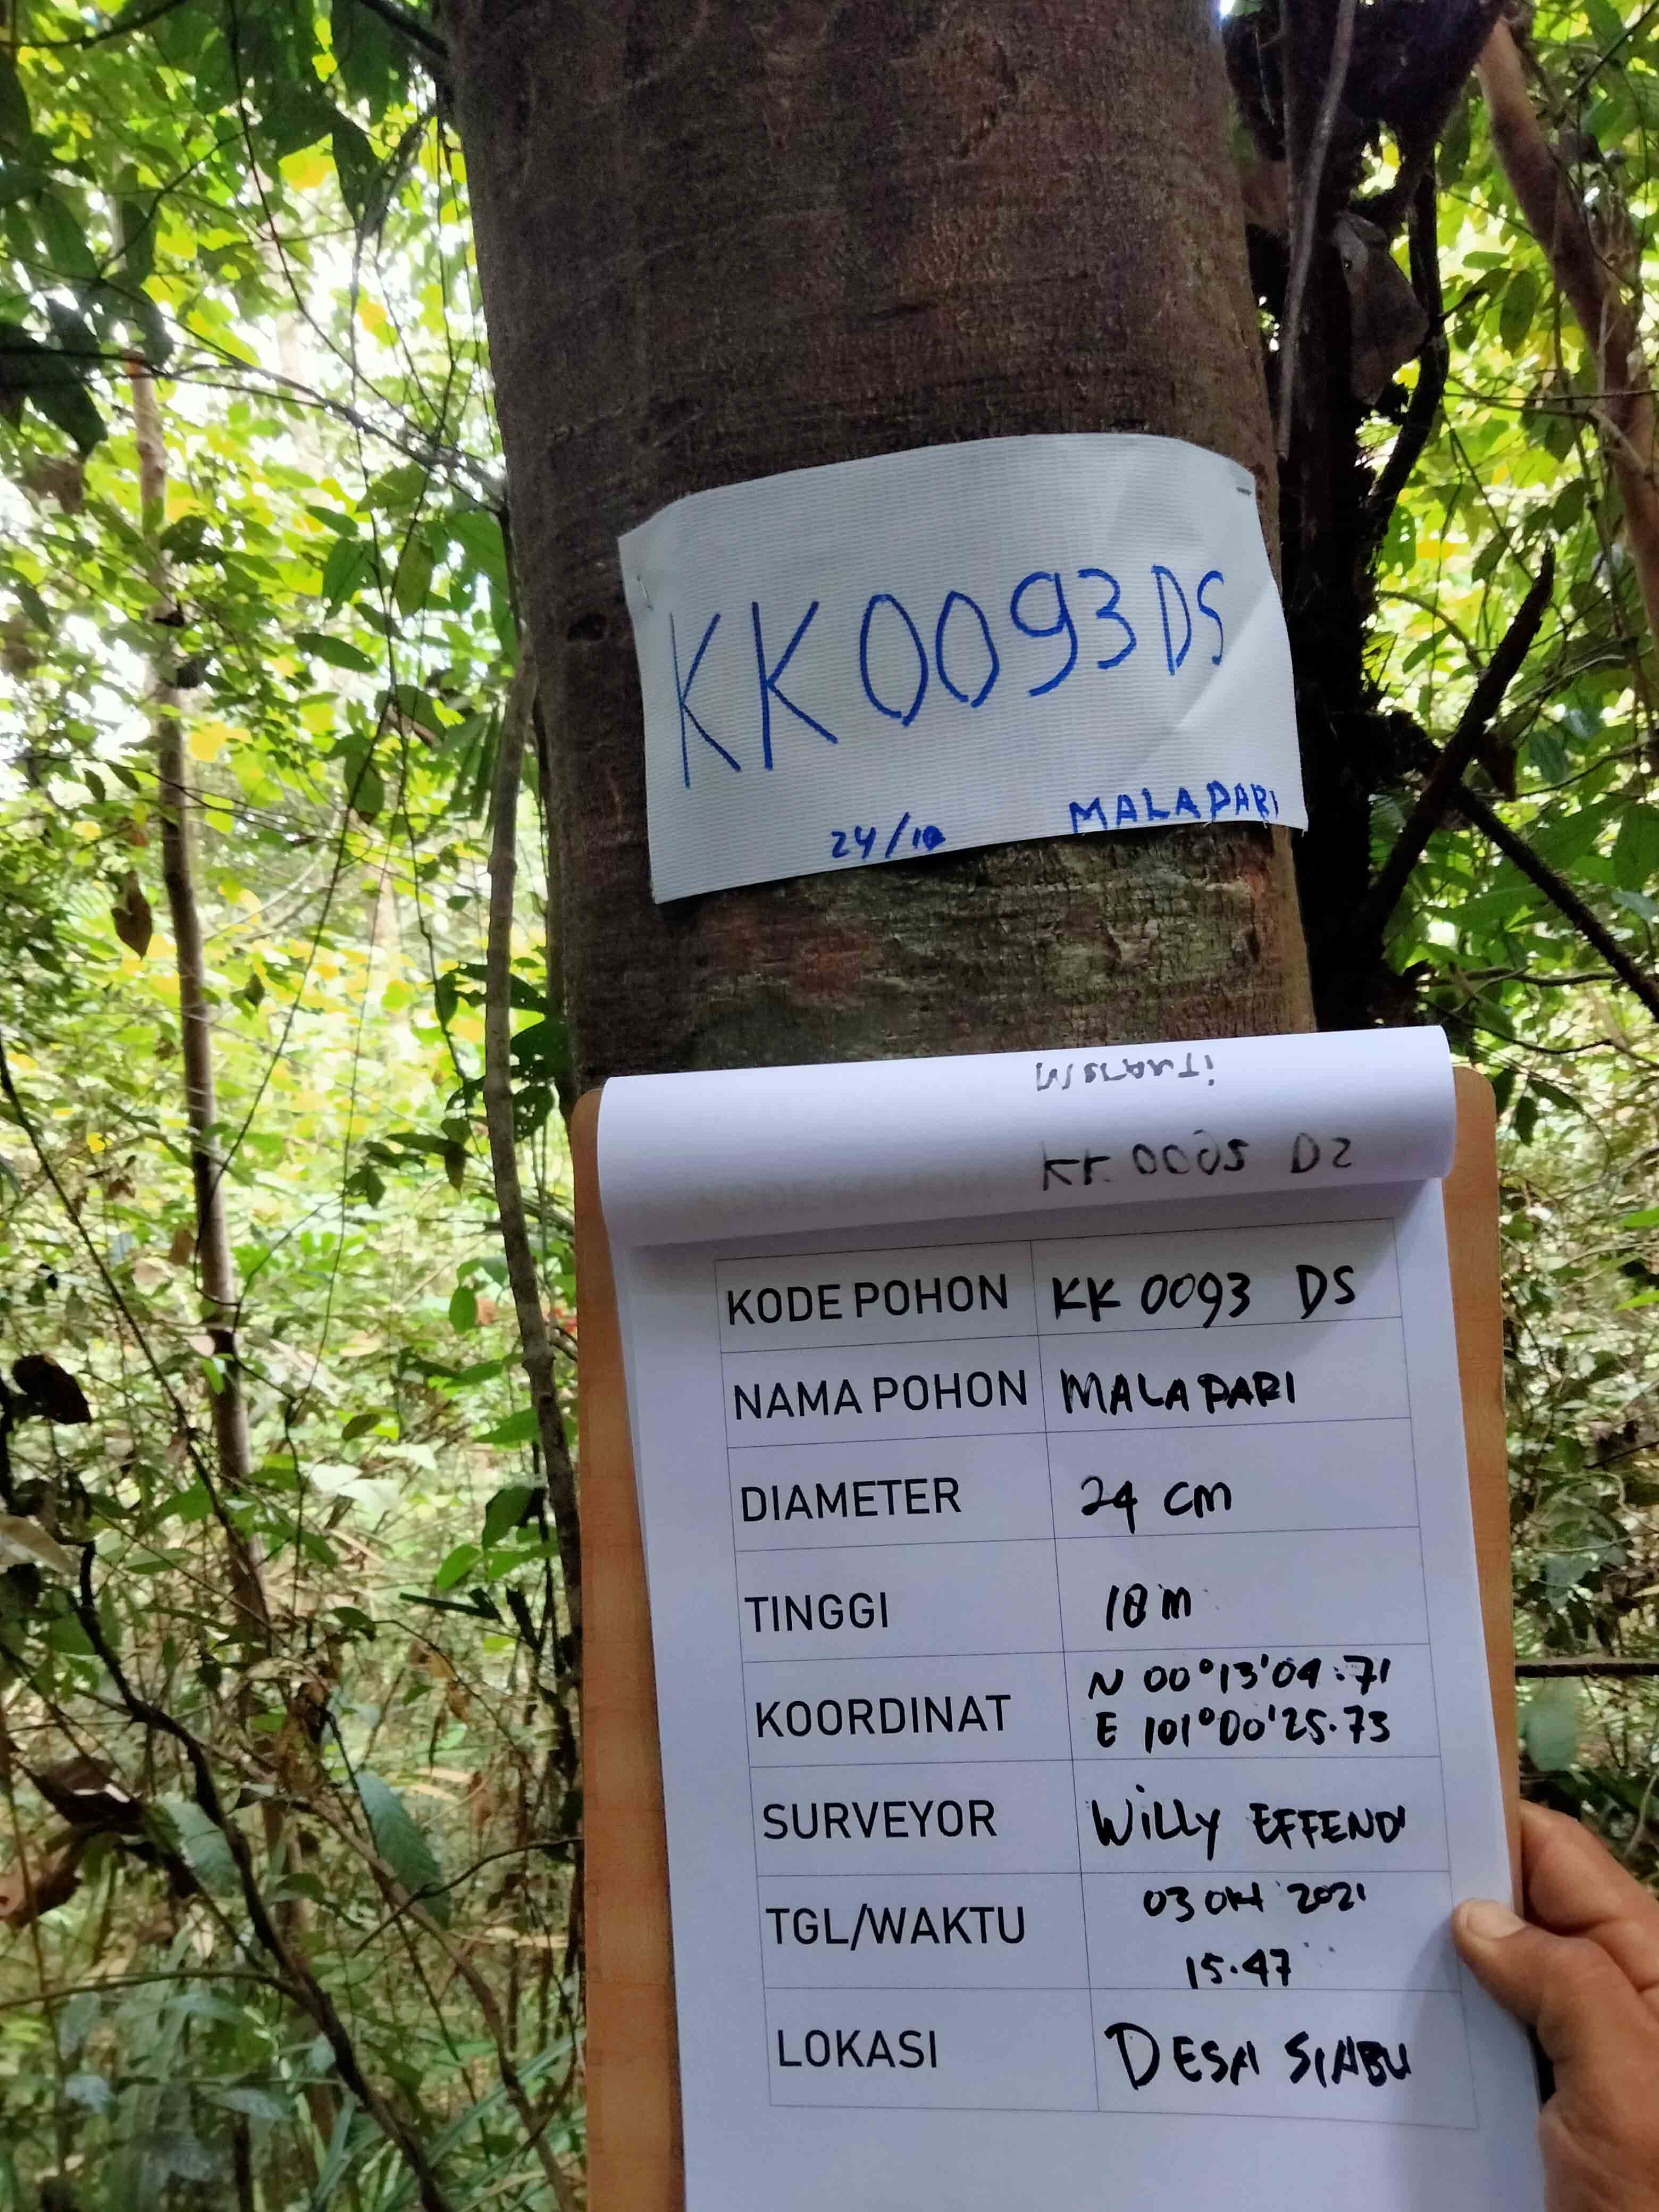 KK0093DS
24/18 MALAPARI
KODE POHON KK 0093 DS
NAMA POHON MALAPARI
DIAMETER 24 cm
TINGGI 18 m
KOORDINAT N 00°13'04.71
E 101°00'25.73
SURVEYOR WILLY EFFENDI
TGL/WAKTU 03 Okt 2021
15.47
LOKASI DESA SIABU